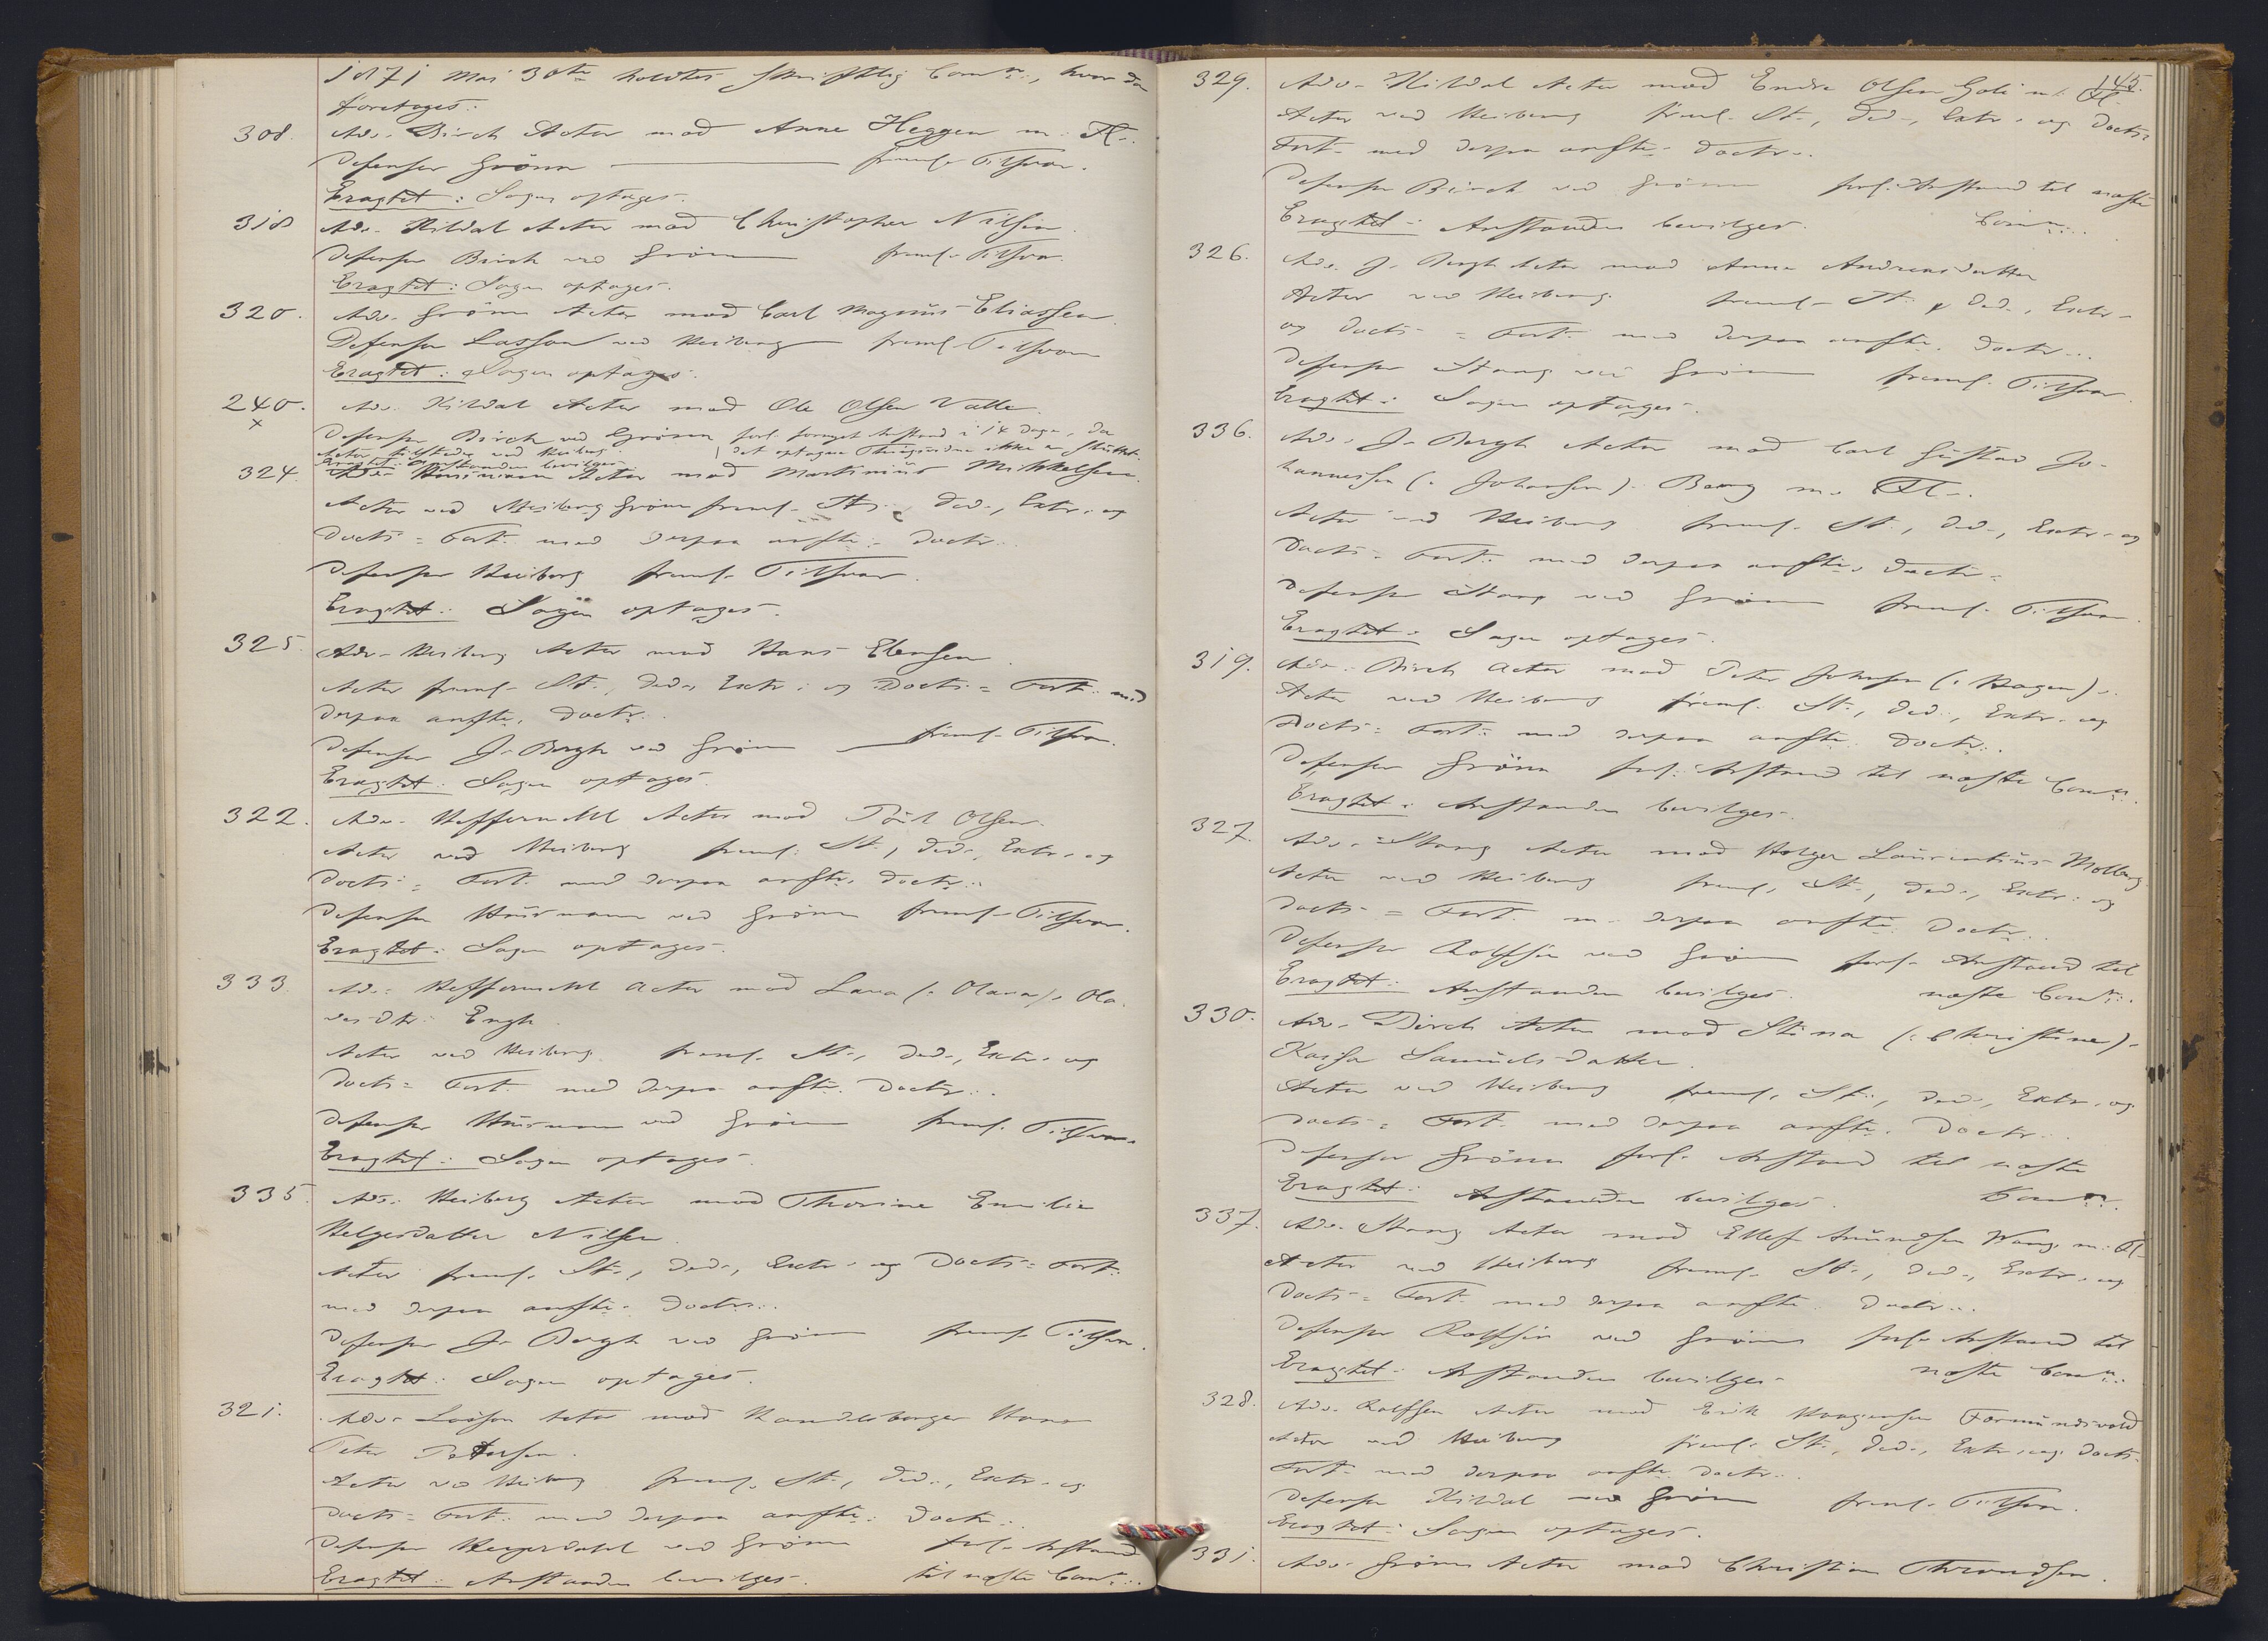 1871 Mai 30te holdtes skriftlig Comn:, hvor da
foretoges:
308. Adv. Birch Actor mod Anne Heggen m. Fl.
Defensor Grönn freml. Tilsvar.
Eragtet: Sagen optages.
318 Adv. Kildal Actor mod Christopher Nilsen.
Defensor Birch ved Grönn freml. Tilsvar.
Eragtet: Sagen optages.
320. Adv. Grönn Actor mod Carl Magnus Eliassen.
Defensor Lasson ved Heiberg freml. Tilsvar
Eragtet: Sagen optages.
240. Adv. Kildal Actor mod Ole Olsen Valle.
x
Defensor Birch ved Grönn forl. fornyet Anstand i 14 Dage, da
Actor tilstede ved Heiberg. det optagne Thingsvidne ikke er sluttet.
Eragtet: Anstanden bevilges.
324. Adv. Husmann Actor mod Martinius Mikkelsen.
Actor ved Grönn freml. St., Ded., Extr. og
Docts = Fort. med derpaa anfte. Doctr.
Defensor Heiberg freml. Tilsvar.
Eragtet: Sagen optages.
325. Adv. Heiberg Actor mod Hans Ebensen.
Actor freml. St., Ded., Extr. og Docts = Fort. med
derpaa anfte. Doctr.
Defensor J. Bergh ved Grönn freml. Tilsvar.
Eragtet: Sagen optages.
322. Adv. Heffermehl Actor mod Poul Olsen.
Actor ved Heiberg freml. St., Ded., Extr. og
Docts = Fort. med derpaa anfte. Doctr.
Defensor Husmann ved Grönn freml. Tilsvar.
Eragtet: Sagen optages.
333 Adv. Heffermehl Actor mod Lava (: Olava) Ola-
vesdtr. Engh.
Actor ved Heiberg freml. St., Ded., Extr. og
Docts = Fort. med derpaa anfte. Doctr.
Defensor Husmann ved Grönn freml. Tilsvar.
Eragtet: Sagen optages.
335. Adv. Heiberg Actor mod Thorine Emilie
Helgesdatter Nilsen.
Actor freml. St., Ded., Extr. og Docts = Fort.
med derpaa anfte. Doctr.
Defensor J. Bergh ved Grönn freml. Tilsvar.
Eragtet: Sagen optages.
321. Adv. Lasson Actor mod Handelsborger Hans
Peter Petersen.
Actor ved Heiberg freml. St., Ded., Extr. og
Docts = Fort. med derpaa anfte. Doctr.
Defensor ved Grönn forl. Anstand
Eragtet: Anstanden bevilges. til næste Comn:.
145.
329. Adv. Kildal Actor mod Endre Olsen m. Fl.
Actor ved Heiberg freml. St., Ded., Extr. og Docts=
Fort. med derpaa anfte. Doctr.
Defensor Birch ved Grönn forl. Anstand til næste
Eragtet: Anstanden bevilges. Comn:.
326. Adv. J. Bergh Actor mod Anne Andreasdatter
Actor ved Heiberg freml. St., Ded., Extr.
og Docts = Fort. med derpaa anfte. Doctr.
Defensor Stang ved Grönn freml. Tilsvar.
Eragtet: Sagen optages.
336. Adv. J. Bergh Actor mod Carl Gustav Jo-
hannessen (: Johansen) Bang m. Fl.
Actor ved Heiberg freml. St., Ded., Extr. og
Docts = Fort. med derpaa anfte. Doctr.
Defensor Stang ved Grönn freml. Tilsvar.
Eragtet: Sagen optages.
319. Adv. Birch Actor mod Peter Johnsen (: Hagen).
Actor ved Heiberg freml. St., Ded., Extr. og
Docts = Fort. med derpaa anfte. Doctr.
Defensor Grönn forl. Anstand til næste Comn:.
Eragtet: Anstanden bevilges.
327. Adv. Stang Actor mod Holger Laurentius Molberg
Actor ved Heiberg freml. St., Ded., Extr. og
Docts = Fort. m. derpaa anfte. Doctr.
Defensor Rolffsen ved Grönn forl. Anstand til
Eragtet: Anstanden bevilges. næste Comn:.
330. Adv. Birch Actor mod Stina (: Christine)
Kaisa Samuelsdatter.
Actor ved Heiberg freml. St., Ded., Extr. og
Docts = Fort. med derpaa anfte. Doctr.
Defensor Grönn forl. Anstand til næste
Eragtet: Anstanden bevilges. Comn:.
337. Adv. Stang Actor mod Ellef Amundsen Wang m. Fl.
Actor ved Heiberg freml. St., Ded., Extr. og
Docts = Fort. med derpaa anfte. Doctr.
Defensor Rolffsen ved Grönn forl. Anstand til
Eragtet: Anstanden bevilges næste Comn:.
328. Adv. Rolffsen Actor mod Erik Haagensen
Actor ved Heiberg freml. St., Ded., Extr. og Docts=
Fort. med derpaa anfte. Doctr.
Defensor Kildal ved Grönn freml. Tilsvar.
Eragtet: Sagen optages.
331. Adv. Grönn Actor mod Christian Throndsen.